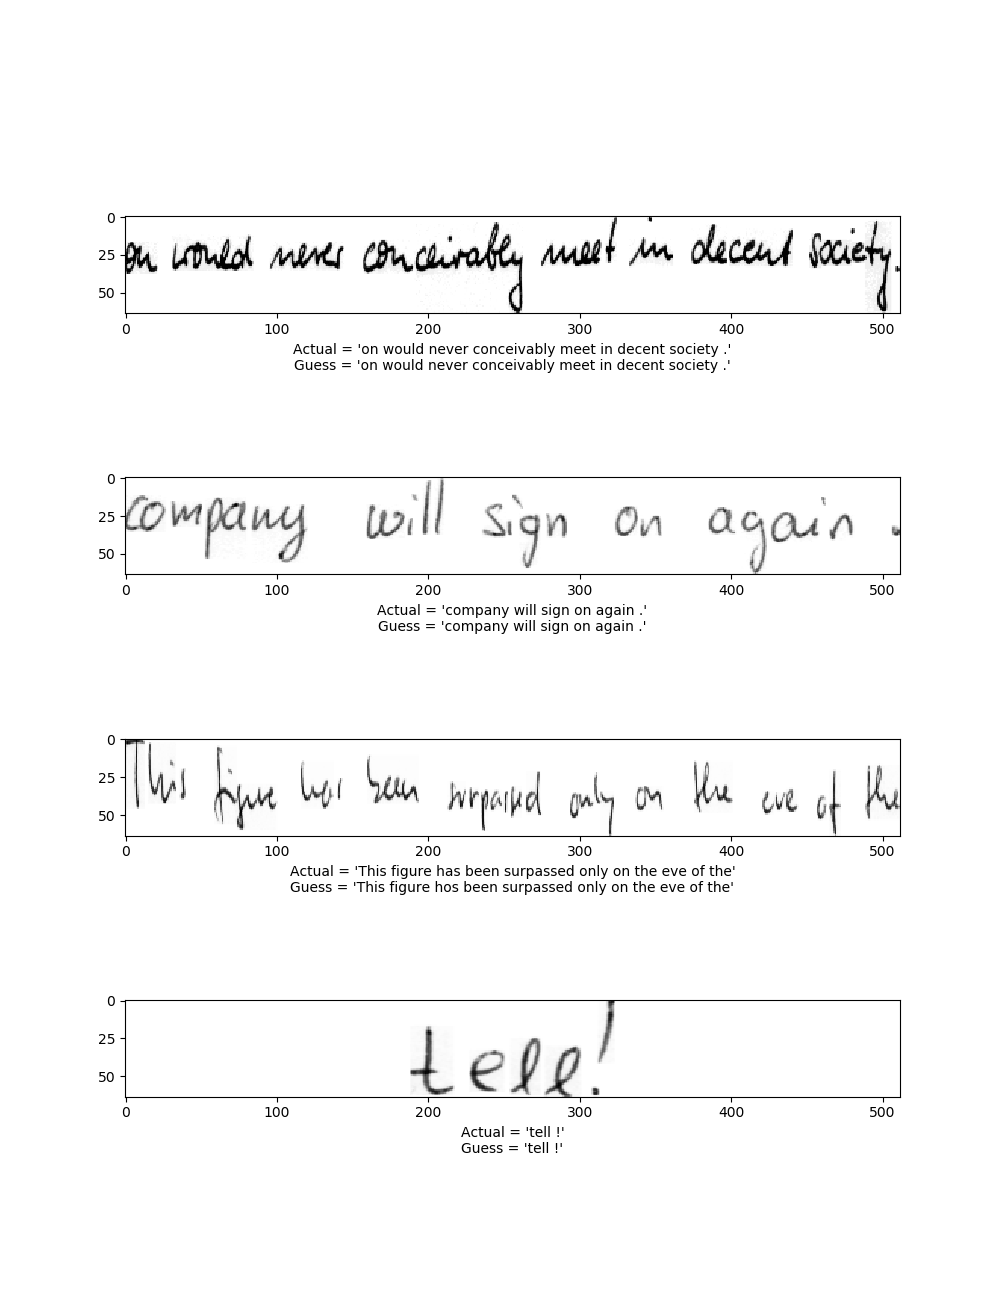 0
25
50
on would never conceivably meet in decent society.
0 100 200 300 400 500
Actual = 'on would never conceivably meet in decent society .'
Guess = 'on would never conceivably meet in decent society .'
0
25
50
company will sign on again .
0 100 200 300 400 500
Actual = 'company will sign on again .'
Guess = 'company will sign on again .'
0
25
50
This figure has been surpassed only on the eve of the
0 100 200 300 400 500
Actual = 'This figure has been surpassed only on the eve of the'
Guess = 'This figure hos been surpassed only on the eve of the'
0
25
50
tell!
0 100 200 300 400 500
Actual = 'tell !'
Guess = 'tell !'